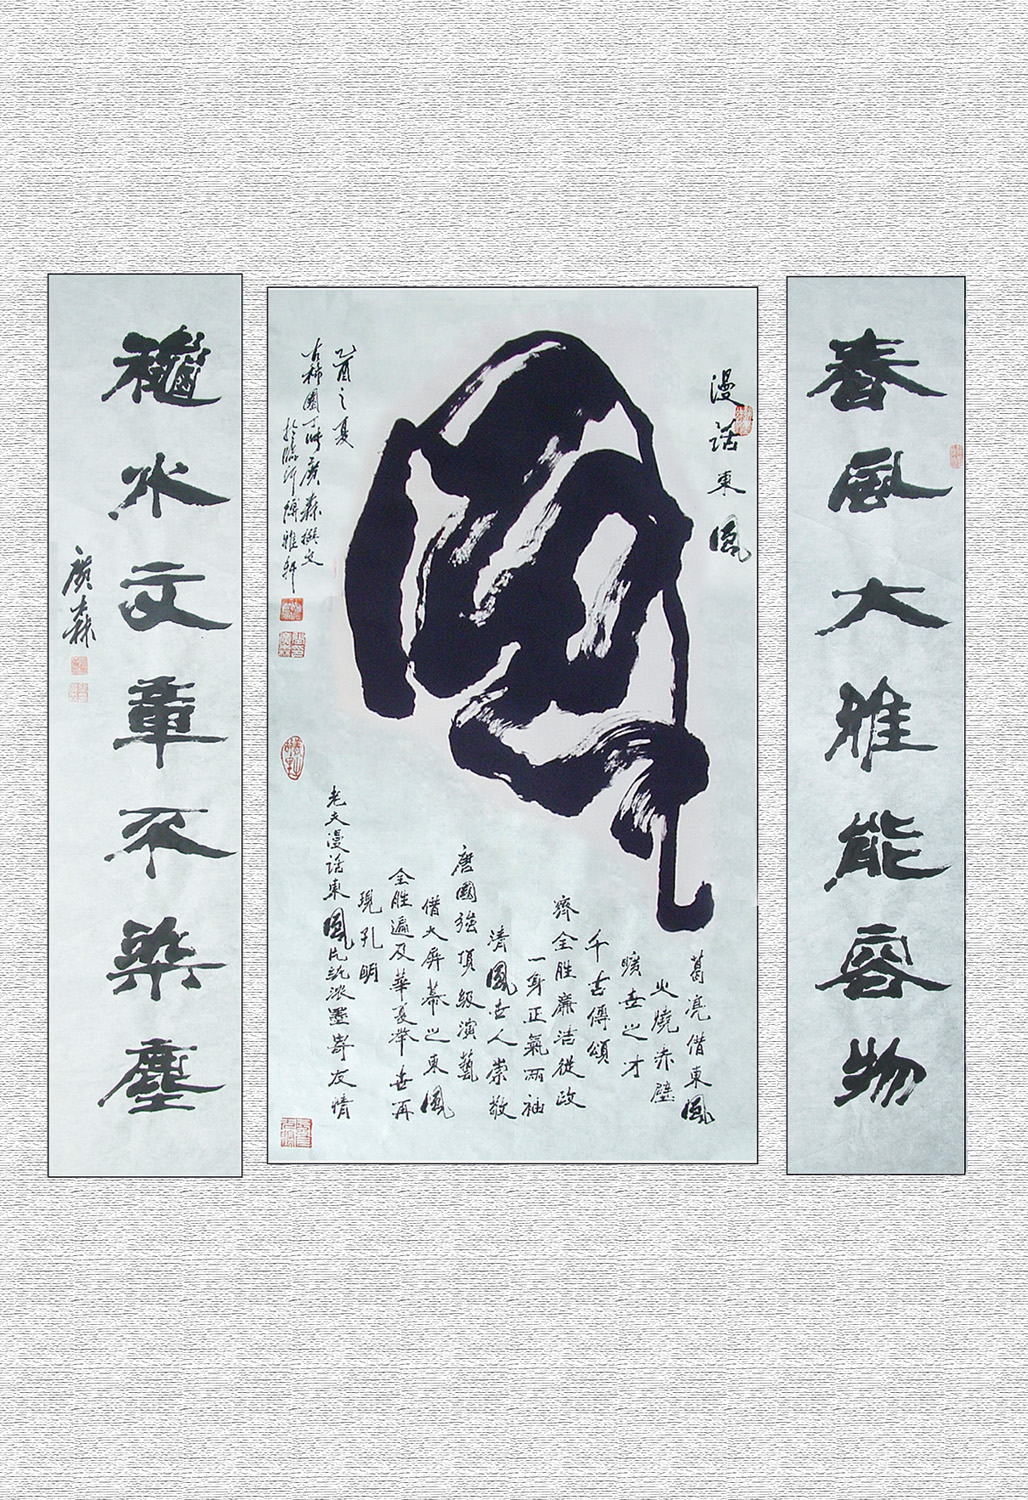 春風大雅能容物
漫話東風
風
葛亮借東風
火燒赤壁
曠世之才
千古傳頌
齊全勝廉洁從政
一身正氣兩袖
清風世人崇敬
唐國強頂級演藝
借大屏幕之東風
全勝遍及華夏舉世再
現孔明
老夫漫話東風凡託濃墨寄友情
乙酉之夏
古稀園丁時廣森撰文
於臨沂博雅軒
龝水文章不染塵
廣森